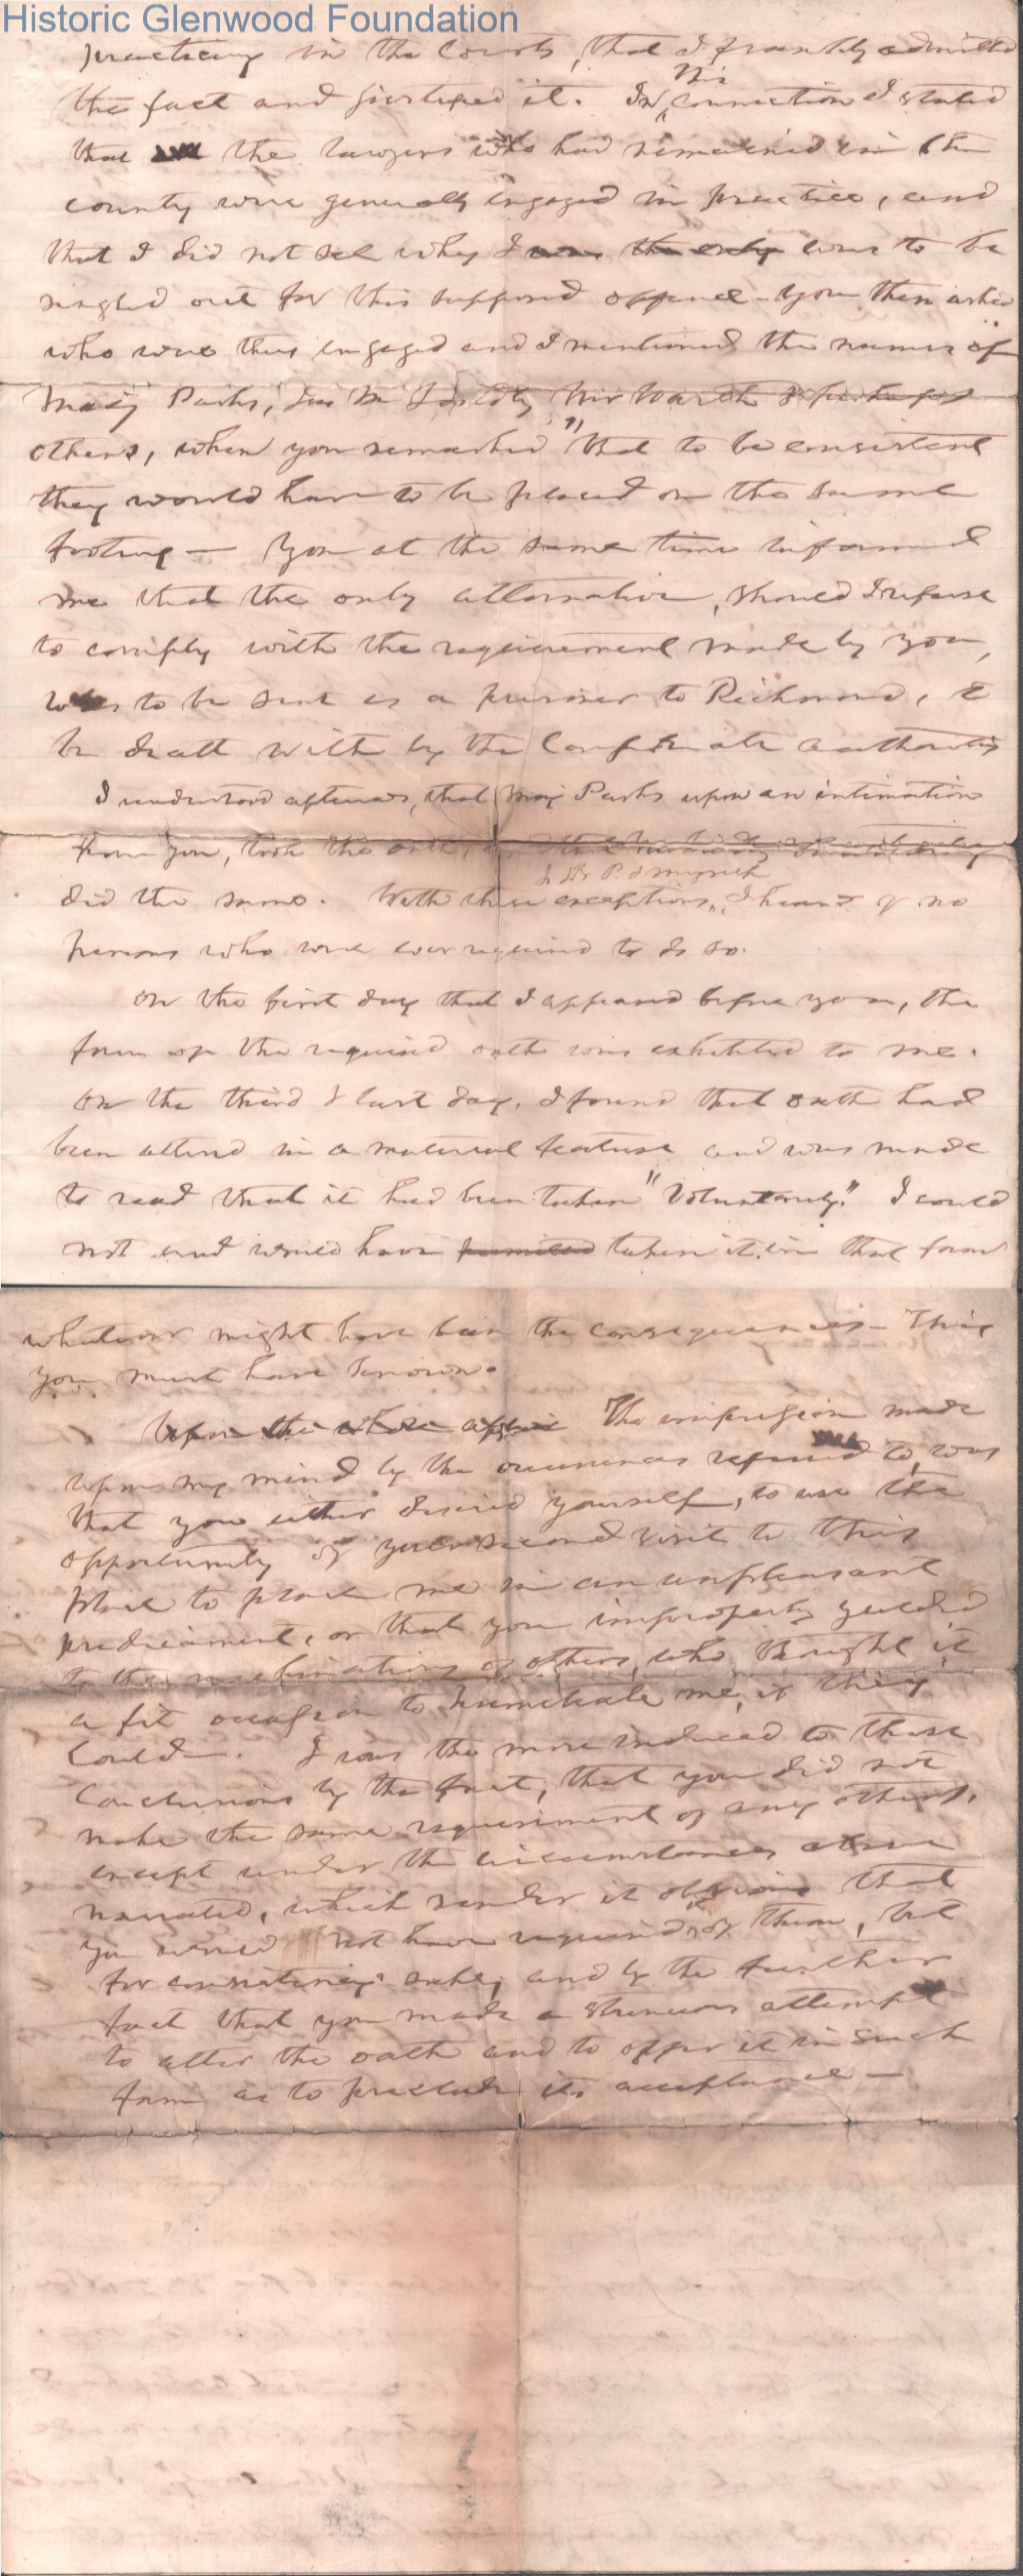 Historic Glenwood Foundation
practicing in the Courts, that I frankly admitted
this
the fact and justified it. In connection I stated
that the lawyers who had remained in the
county were generally engaged in practice, and
that I did not see why I was the only was to be
singled out for this supposed offence - You then asked
who were thus engaged and I mentioned the names of
Majr Parks, Jas M Mr Warth & perhaps
others, when you remarked "that to be consistent
they would have to be placed on the same
footing — You at the same time informed
me that the only alternative, should I refuse
to comply with the requirement made by you,
was to be sent as a prisoner to Richmond, &
be dealt with by the Confederate authorities
I understood afterwards, that Maj Parks upon an intimation
from you, took the oath,
did the same. With these exceptions, I heard of no
persons who were ever required to do so.
On the first day that I appeared before you, the
form of the required oath was exhibited to me.
On the third & last day, I found that oath had
been altered in a material feature and was made
to read that it had been taken "Voluntarily." I could
not and would have taken it in that form
whatever might have been the consequences - This
you must have known.
Upon the whole affair The impression made
upon my mind by the occurrences referred to, was
that you either desired yourself, to use the
opportunity of your second visit to this
place to place me in an unpleasant
predicament, or that you improperly yielded
to the machinations of others, who thought it
a fit occasion to humiliate me, if they
could. I was the more induced to these
conclusions by the fact, that you did not
make the same requirement of any others,
except under the circumstances above
narrated, which render it obvious that
you would not have required it of them, but
for consistency only, and by the further
fact that you made a strenuous attempt
to alter the oath and to offer it in such
form as to preclude its acceptance —